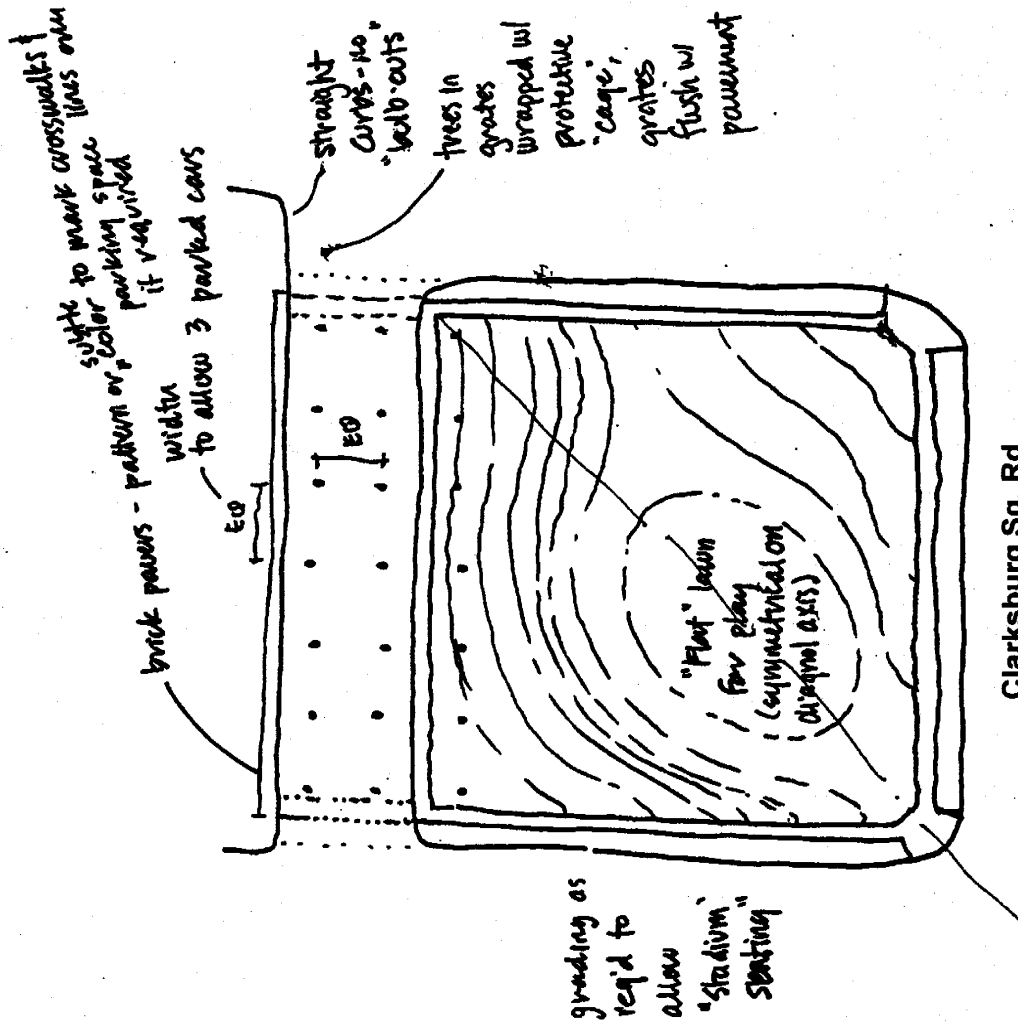 subtle to mark crosswalks &
brick pavers - pattern or color parking space lines even
if required
width
to allow 3 parked cars
EQ
EQ
straight
curbs - no
"bulb-outs"
trees in
grates
wrapped w/
protective
"cage",
grates
flush w/
pavement
"Flat" lawn
for play
(symmetrical on
diagnol axis)
grading as
req'd to
allow
"stadium"
seating"
Clarksburg Sq. Rd